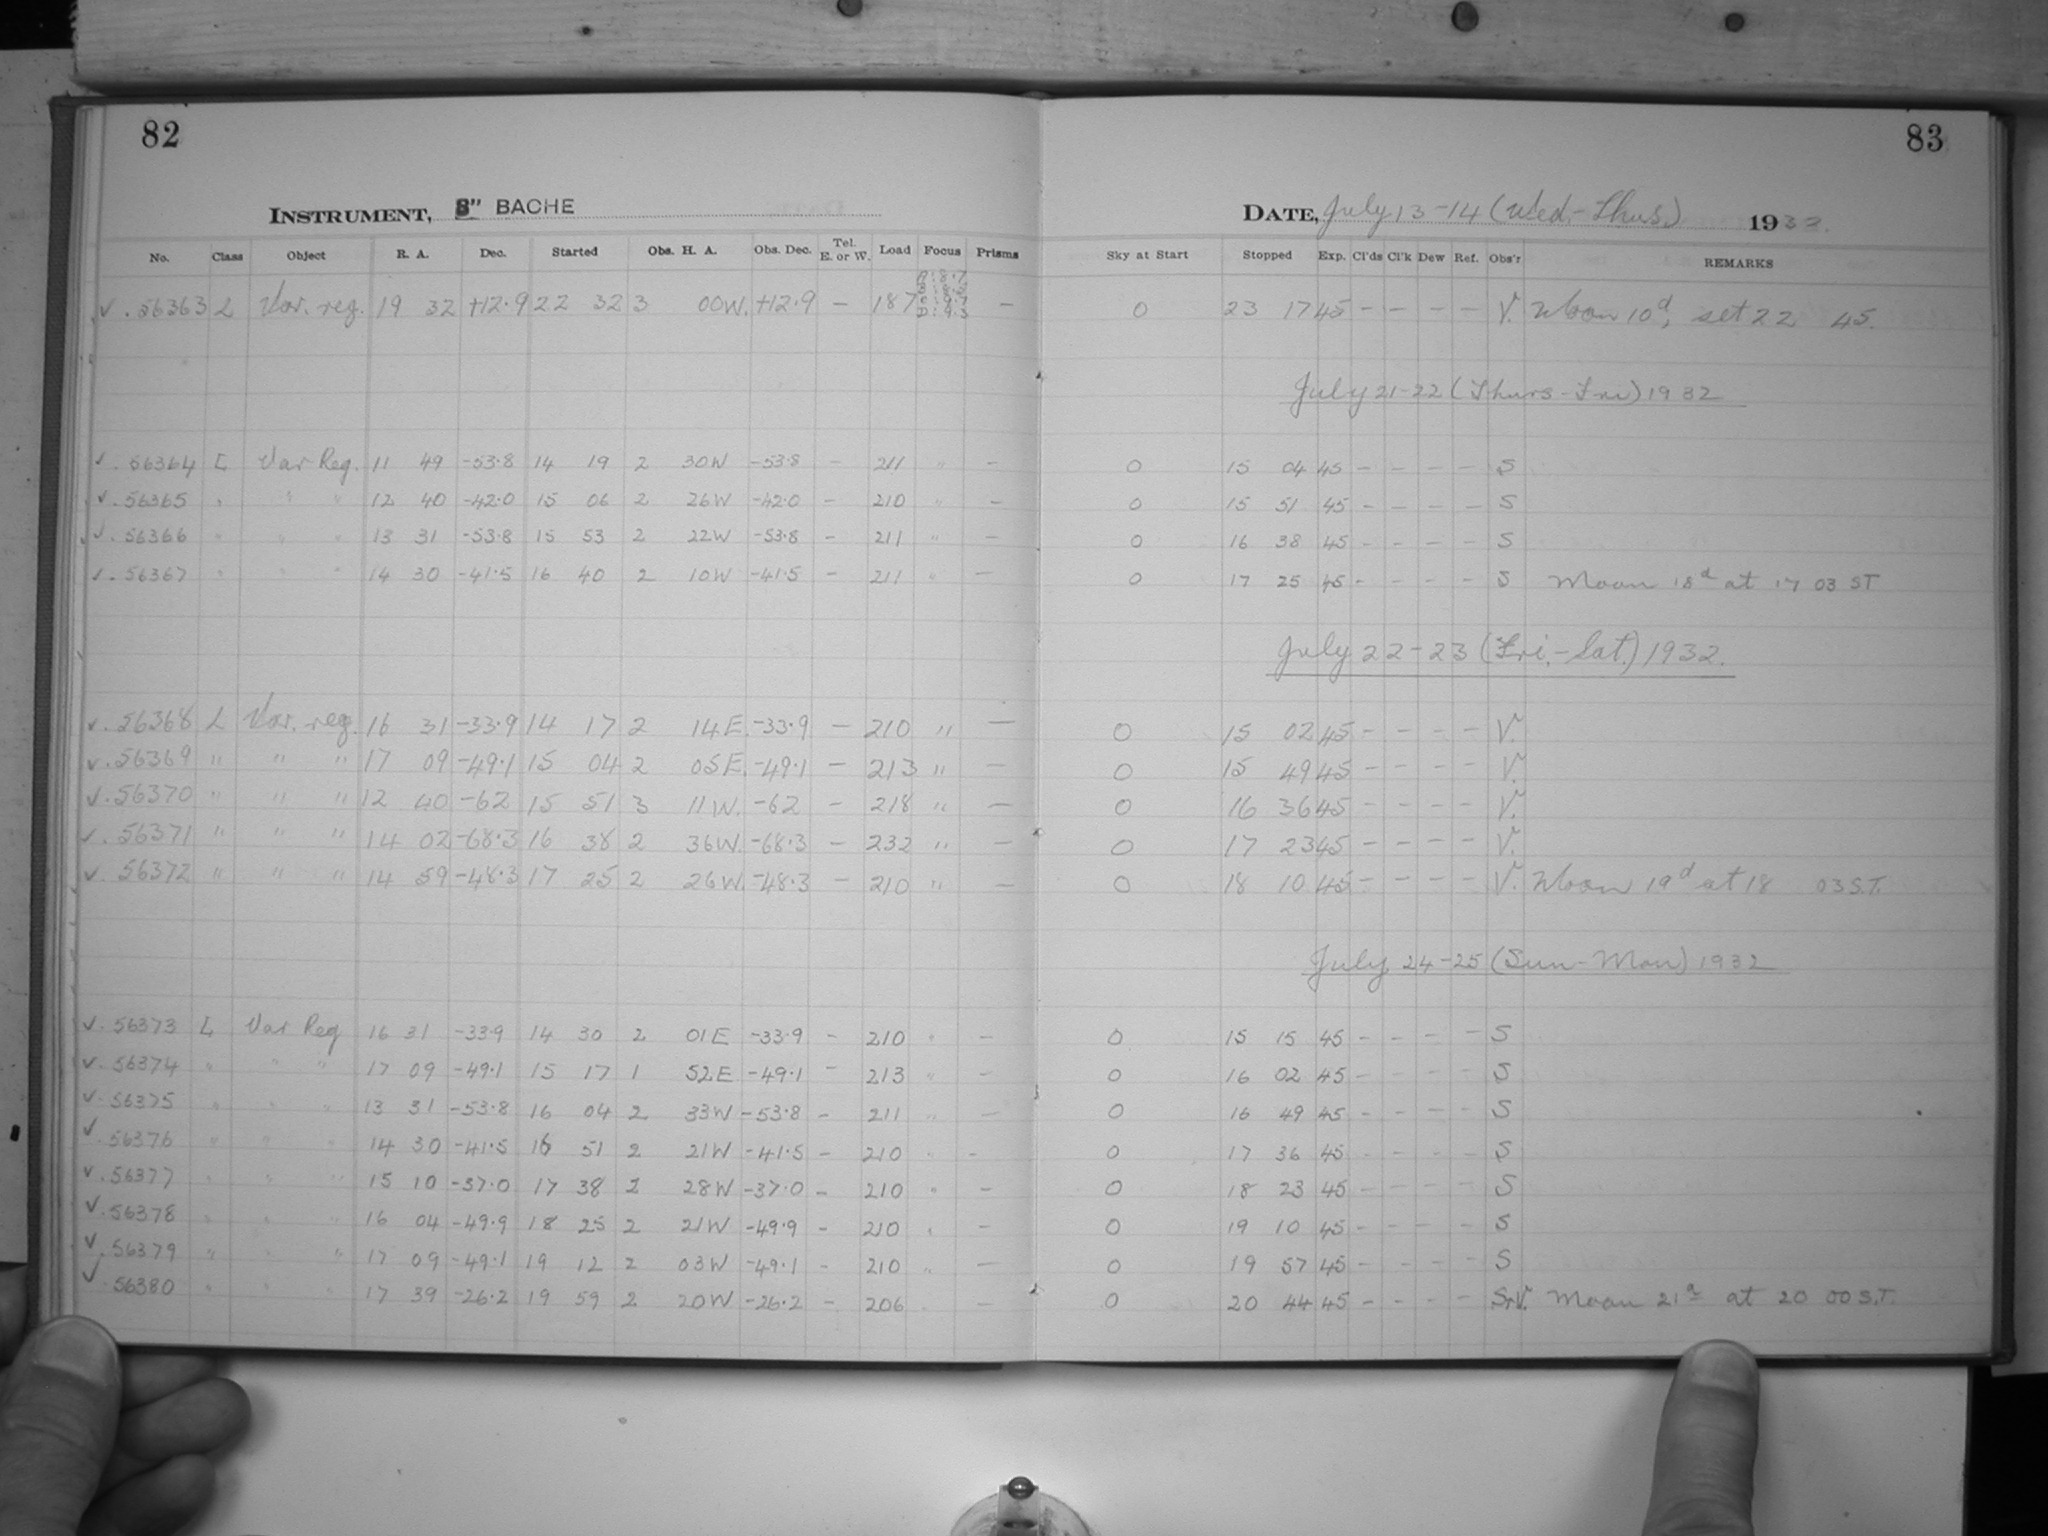 82
INSTRUMENT, 8" BACHE
No. Class Object R. A. Dec. Started Obs. H. A. Obs. Dec. Tel. E. or W. Load Focus Prisms
✓. 56363 L Var. reg. 19 32 +12.9 22 32 3 00W. +12.9 – 187 –
✓. 56364 L Var Reg. 11 49 -53.8 14 19 2 30W -53.8 – 211 " –
✓. 56365 " " " 12 40 -42.0 15 06 2 26W -42.0 – 210 " –
✓. 56366 " " " 13 31 -53.8 15 53 2 22W -53.8 – 211 " –
✓. 56367 " " " 14 30 -41.5 16 40 2 10W -41.5 – 211 " –
✓. 56368 L Var. reg. 16 31 -33.9 14 17 2 14E. -33.9 – 210 " –
✓. 56369 " " " 17 09 -49.1 15 04 2 05E. -49.1 – 213 " –
✓. 56370 " " " 12 40 -62 15 51 3 11W. -62 – 218 " –
✓. 56371 " " " 14 02 -68.3 16 38 2 36W. -68.3 – 232 " –
✓. 56372 " " " 14 59 -48.3 17 25 2 26W. -48.3 – 210 " –
✓. 56373 L Var Reg 16 31 -33.9 14 30 2 01E -33.9 – 210 " –
✓. 56374 " " " 17 09 -49.1 15 17 1 52E -49.1 – 213 " –
✓. 56375 " " " 13 31 -53.8 16 04 2 33W -53.8 – 211 " –
✓. 56376 " " " 14 30 -41.5 16 51 2 21W -41.5 – 210 " –
✓. 56377 " " " 15 10 -37.0 17 38 2 28W -37.0 – 210 " –
✓. 56378 " " " 16 04 -49.9 18 25 2 21W -49.9 – 210 " –
✓. 56379 " " " 17 09 -49.1 19 12 2 03W -49.1 – 210 " –
✓. 56380 " " " 17 39 -26.2 19 59 2 20W -26.2 – 206 " –
83
DATE, July 13-14 (Wed.-Thus.) 1932.
Sky at Start Stopped Exp. Cl'ds Cl'k Dew Ref. Obs'r REMARKS
0 23 17 45 – – – – V. Moon 10d, set 22 45.
July 21-22 (Thurs-Fri) 1932
0 15 04 45 – – – – S
0 15 51 45 – – – – S
0 16 38 45 – – – – S
0 17 25 45 – – – – S Moon 18d at 17 03 ST
July 22-23 (Fri.-Sat.) 1932.
0 15 02 45 – – – – V.
0 15 49 45 – – – – V.
0 16 36 45 – – – – V.
0 17 23 45 – – – – V.
0 18 10 45 – – – – V. Moon 19d at 18 03 S.T.
July 24-25 (Sun-Mon) 1932
0 15 15 45 – – – – S
0 16 02 45 – – – – S
0 16 49 45 – – – – S
0 17 36 45 – – – – S
0 18 23 45 – – – – S
0 19 10 45 – – – – S
0 19 57 45 – – – – S
0 20 44 45 – – – – S+V. Moon 21d at 20 00 S.T.